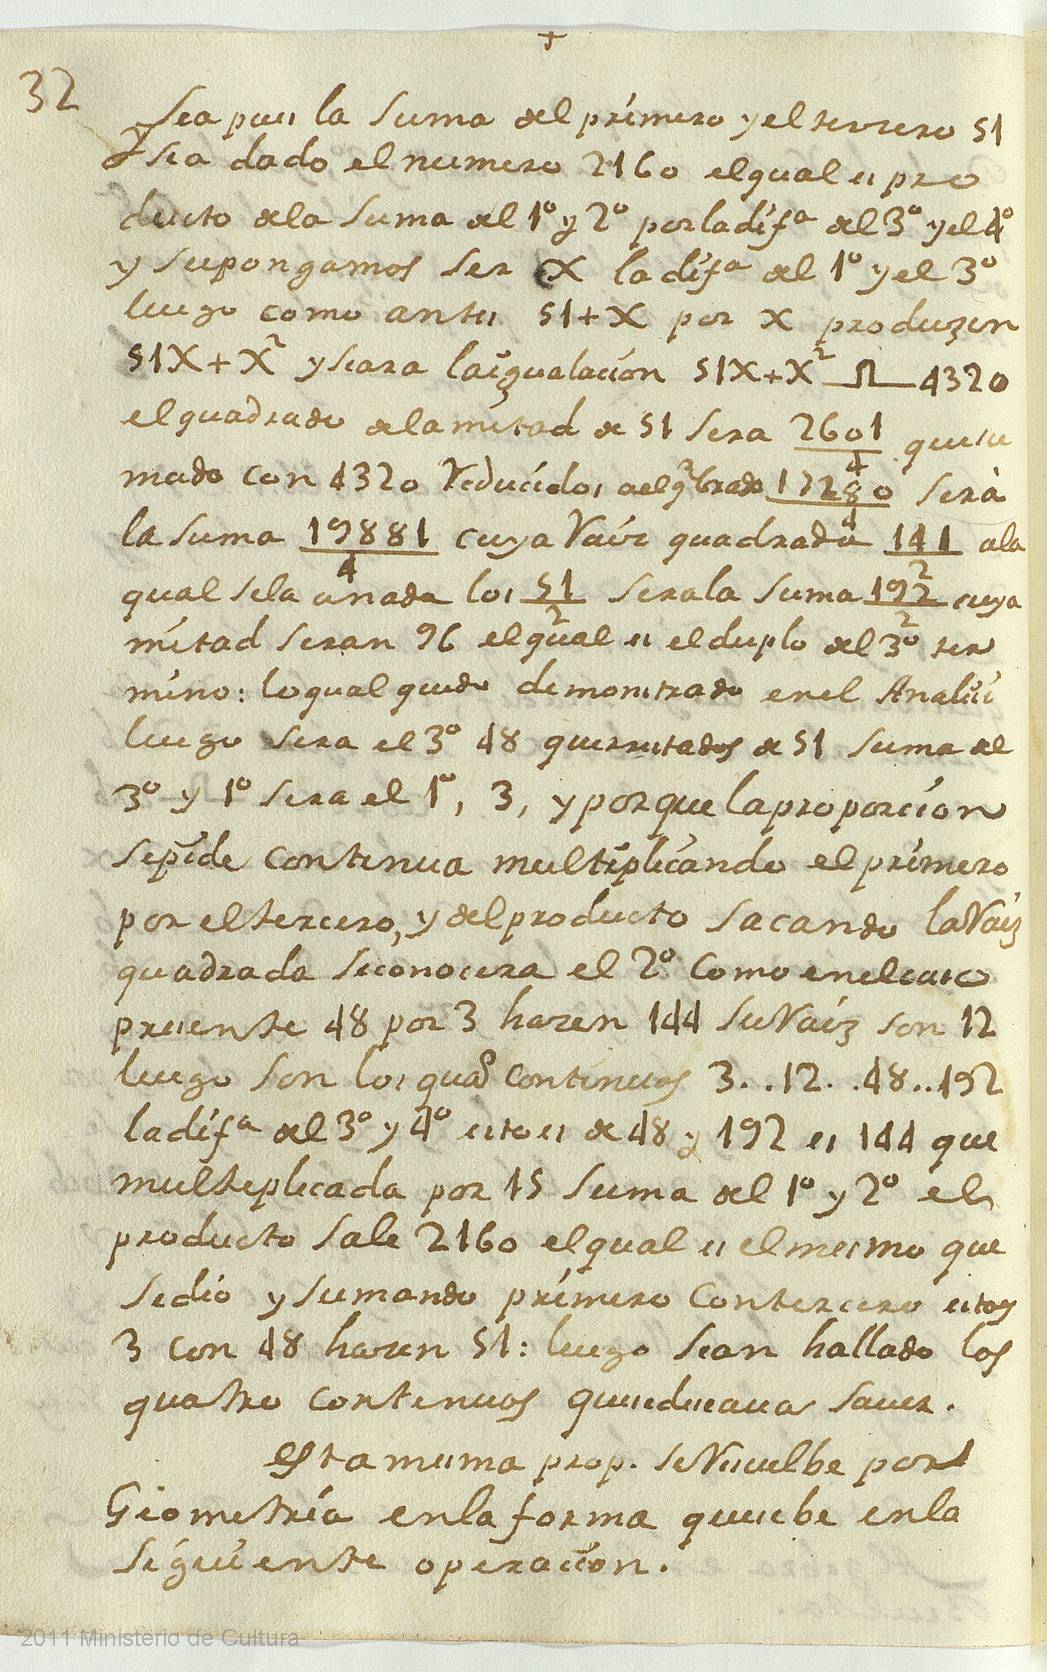 +
32
Sea pues la suma del primero y el terzero 51
y sea dado el numero 2160 el qual es pro
ducto de la suma del 1º y 2º por la difª del 3º y el 4º
y supongamos ser X la difª del 1º y el 3º
luego como antes 51+X por X produzen
51X+X² y seara la igualacion 51X+X² Ω 4320
el quadrado de la mitad de 51 sera 2601/4 que su
mado con 4320 Reducidos a el qbrado 17280/4 serà
la suma 19881/4 cuya Raiz quadrada 141/2 a la
qual se la añada los 51/2 sera la suma 192/2 cuya
mitad seran 96 el qual es el duplo del 3º ter
mino: lo qual quedo demonstrado en el Analisi
luego sera el 3º 48 que restados de 51 suma del
3º y 1º sera el 1º, 3, y porque la proporcion
se pide continua multiplicando el primero
por el tercero, y del producto sacando la Raiz
quadrada se conocera el 2º como en el caso
presente 48 por 3 hazen 144 su Raiz son 12
luego son los quaº continuos 3..12..48..192
la difª del 3º y 4º esto es de 48 y 192 es 144 que
multiplicada por 15 suma del 1º y 2º el
producto sale 2160 el qual es el mesmo que
se dio y sumando primero con tercero estos
3 con 48 hazen 51: luego sean hallado los
quatro continuos que se deseauan sauer.
Esta mesma prop. se Resuelbe por
Geometria en la forma que se be en la
siguiente operacion.
2011 Ministerio de Cultura